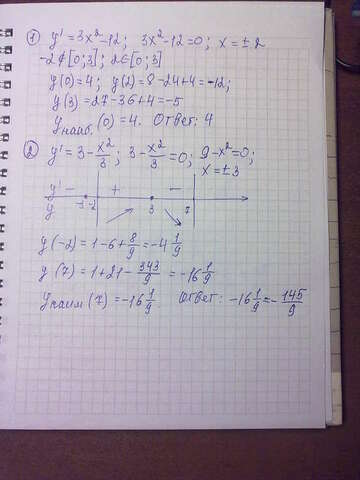 ① y' = 3x²-12; 3x²-12=0; x=±2
-2∉[0;3]; 2∈[0;3]
y(0)=4; y(2)=8-24+4=-12;
y(3)=27-36+4=-5
y наиб. (0)=4. Ответ: 4
② y' = 3 - x²/3; 3 - x²/3 = 0; 9-x²=0;
x=±3
y' - + -
y -3 -2 3 7
y(-2)=1-6+8/9=-4 1/9
y(7)=1+21-343/9=-16 1/9
y наим (7)=-16 1/9 Ответ: -16 1/9=-145/9